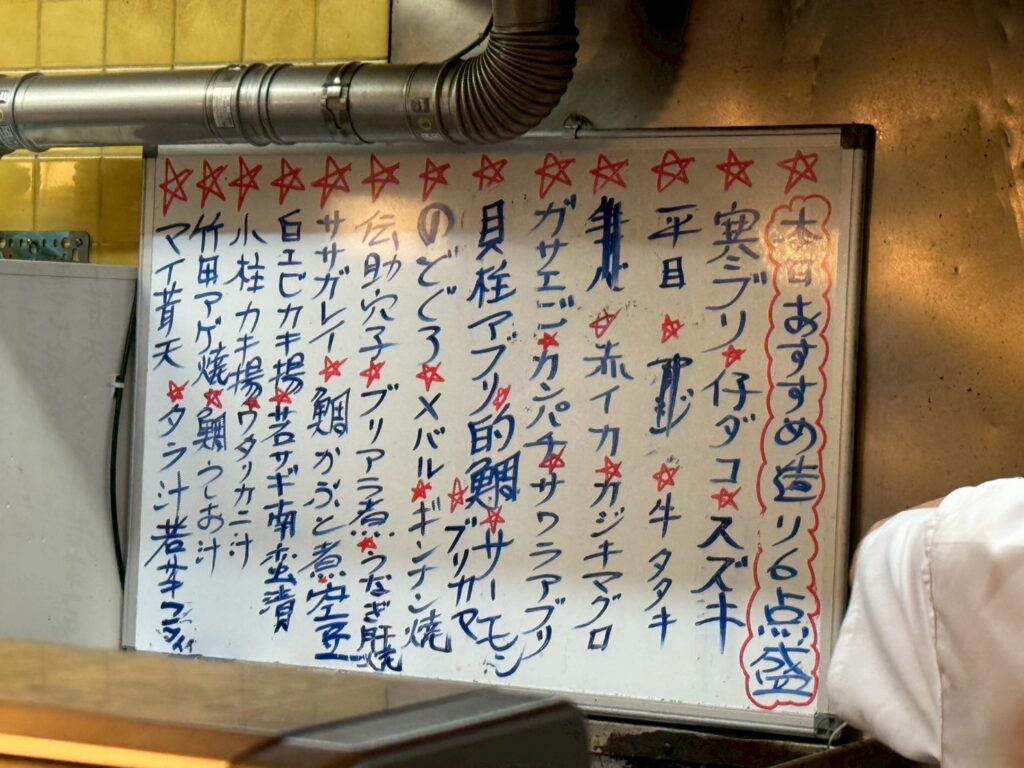 本日おすすめ造り6点盛
寒ブリ 仔ダコ スズキ
平目 牛タタキ
赤イカ カジキマグロ
ガサエビ カンパチ サワラアブリ
貝柱アブリ 的鯛 サーモン
ブリカマ
のどぐろ メバル ギンナン焼
伝助穴子 ブリアラ煮 うなぎ肝焼
ササガレイ 鯛かぶと煮 空豆
白エビカキ揚 若サギ南蛮漬
小柱カキ揚 ワタリカニ汁
竹田アゲ焼 鯛うしお汁
マイ茸天 タラ汁